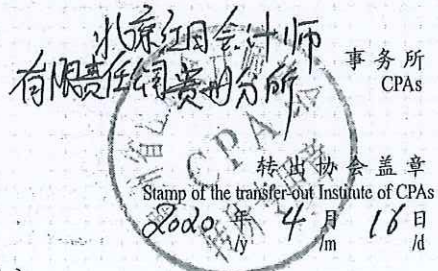 北京红日会计师
有限责任公司贵州分所
事务所
CPAs
CPA
转出协会盖章
Stamp of the transfer-out Institute of CPAs
2020 年 4 月 16 日
/y /m /d